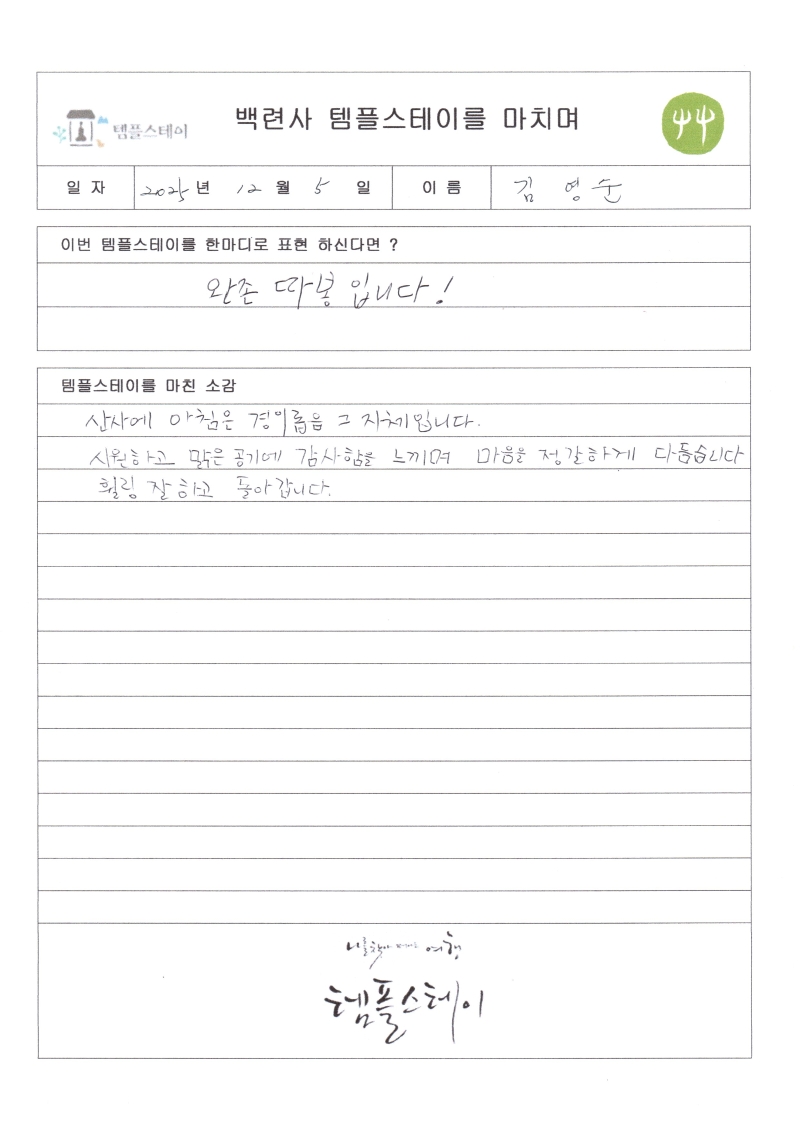 템플스테이
백련사 템플스테이를 마치며
일 자 2025 년 12 월 5 일 이 름 김 영 순
이번 템플스테이를 한마디로 표현 하신다면 ?
완존 따봉 입니다!
템플스테이를 마친 소감
산사에 아침은 경이롭음 그 자체입니다.
시원하고 맑은 공기에 감사함을 느끼며 마음을 정갈하게 다듬습니다
휠링 잘 하고 돌아갑니다.
나를 찾아 떠나는 여행
템플스테이